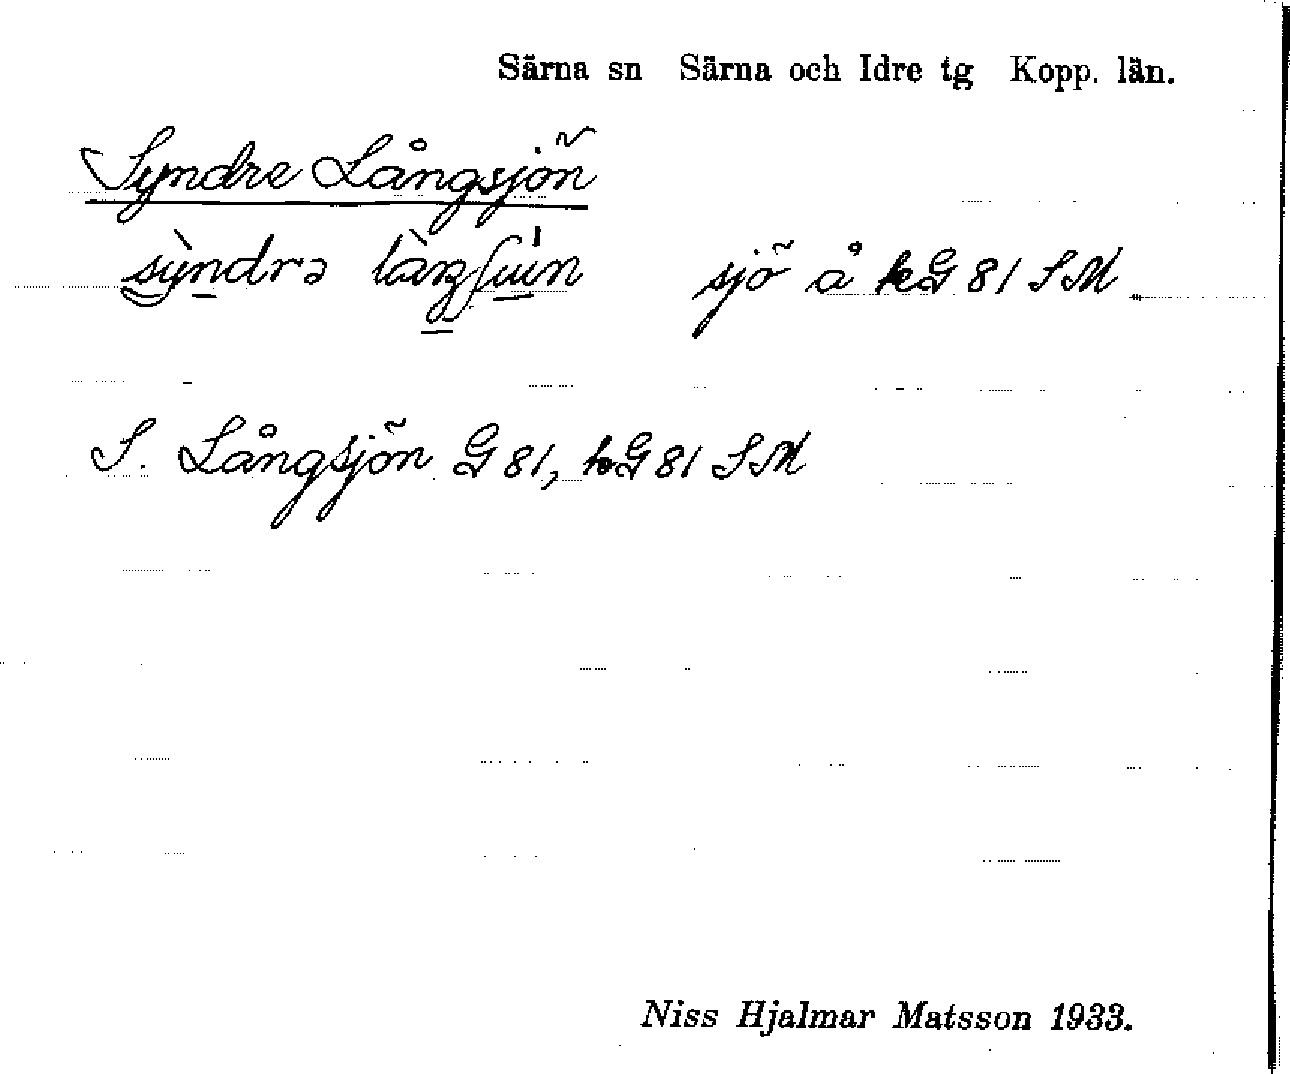 Särna sn Särna och Idre tg Kopp. län.
Syndre Långsjön
sjö å kG 81 SM
S. Långsjön G 81, kG 81 SM
Niss Hjalmar Matsson 1933.